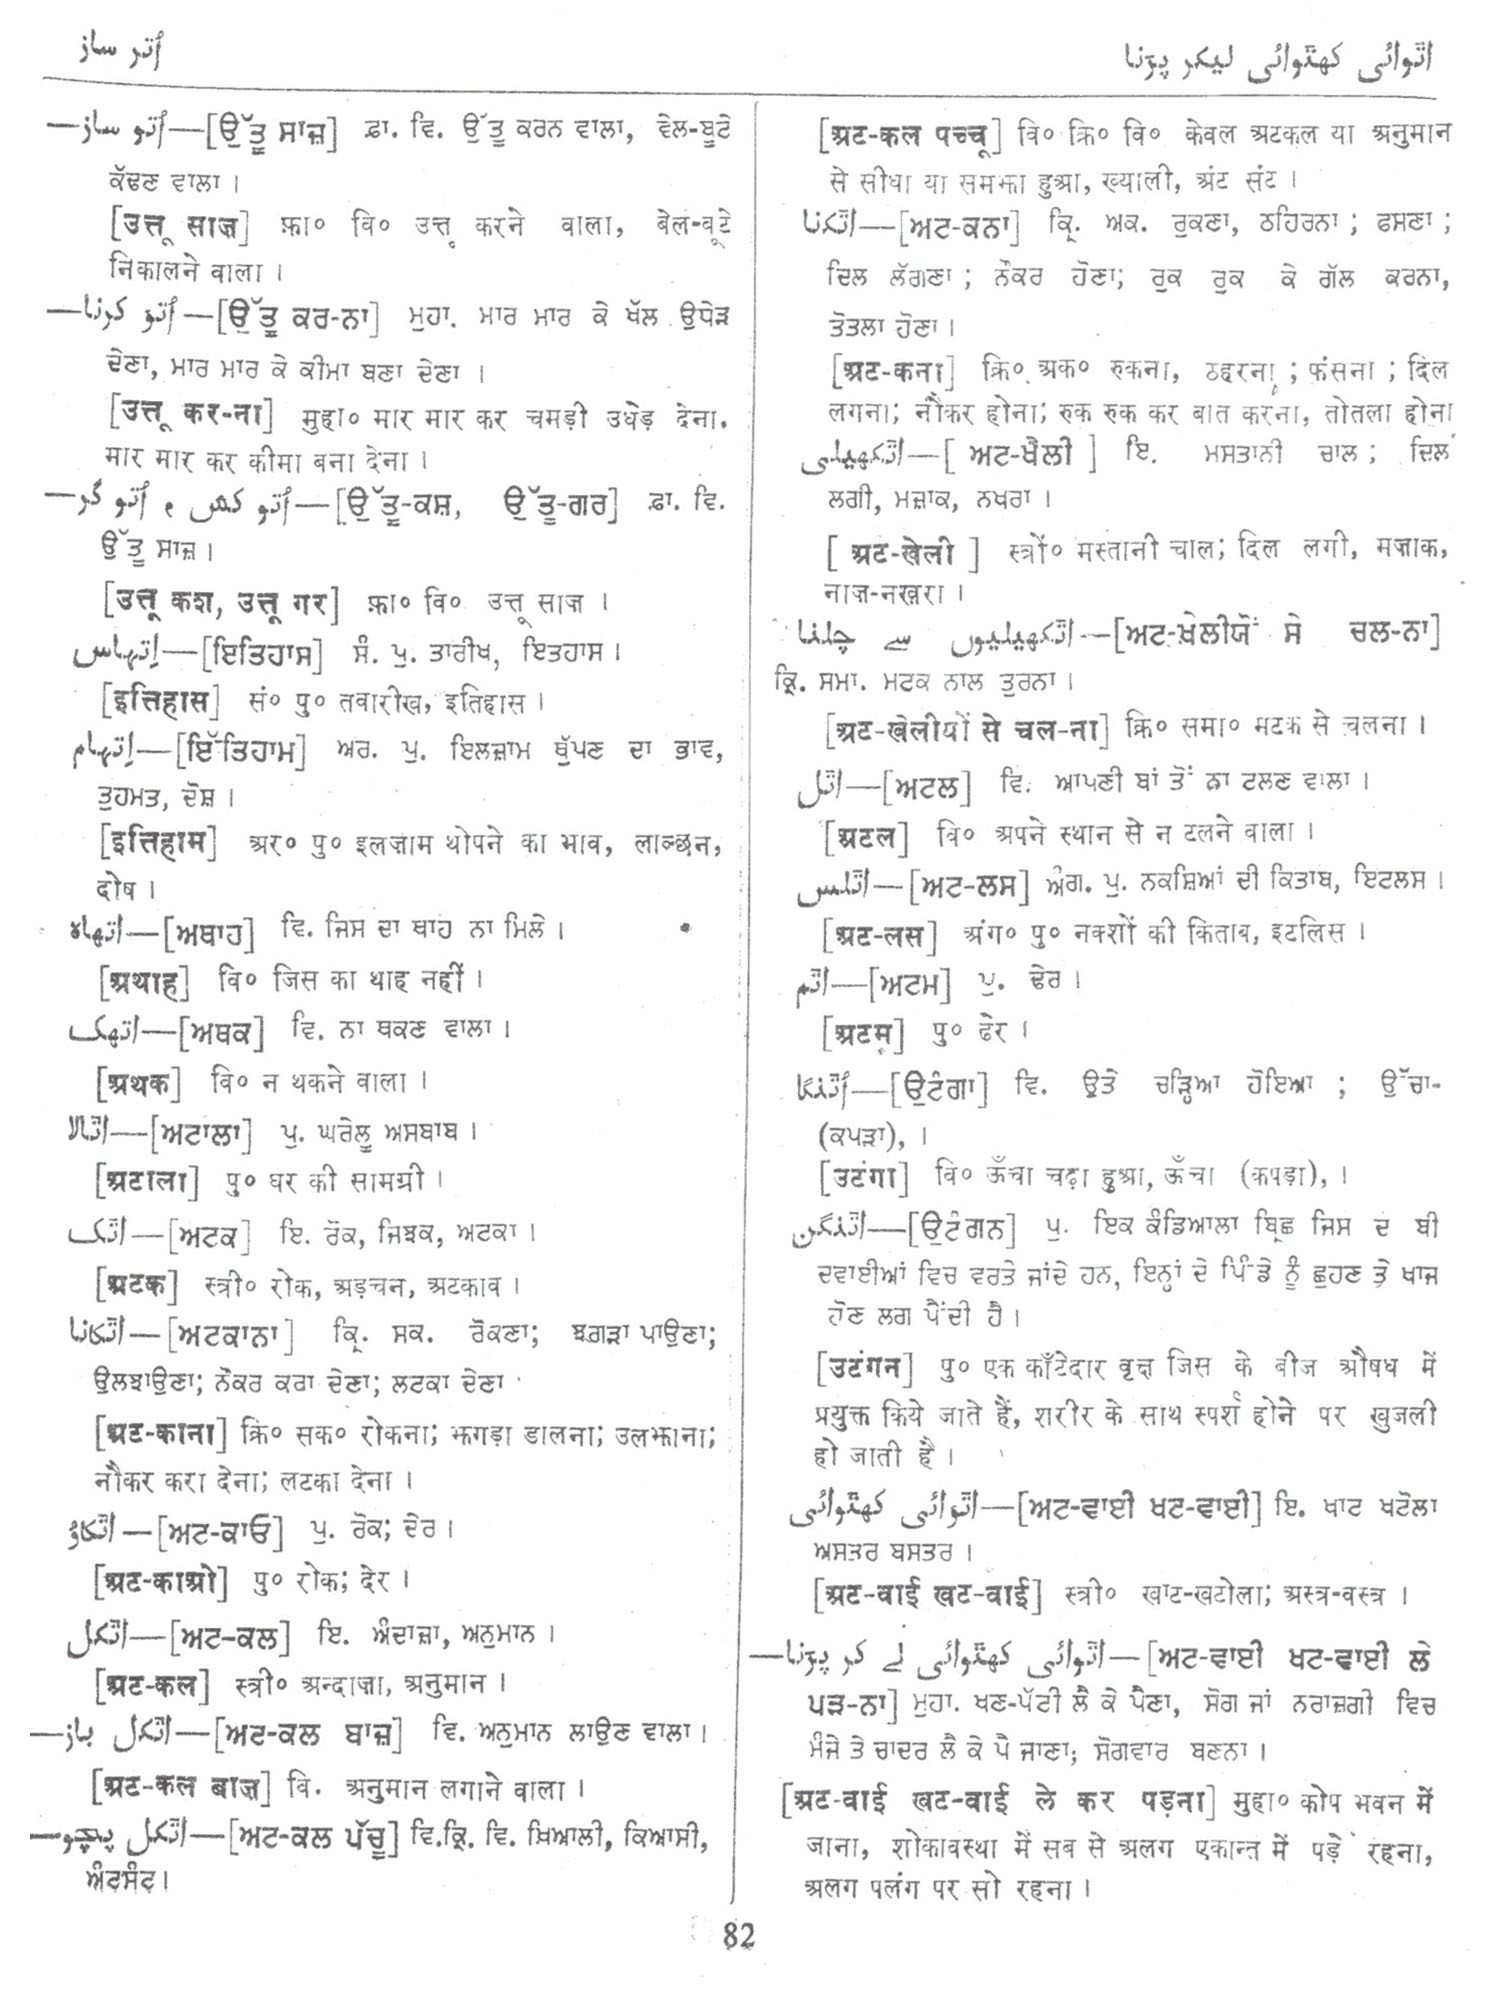 اُتر ساز
اٹوائی کھٹوائی لیکر پڑنا
اُتو ساز—[ਉੱਤੂ ਸਾਜ਼] ਫ਼ਾ. ਵਿ. ਉੱਤੂ ਕਰਨ ਵਾਲਾ, ਵੇਲ-ਬੂਟੇ
ਕੱਢਣ ਵਾਲਾ।
[उत्तू साज़] फ़ा० वि० उत्तू करने वाला, बेल-बूटे
निकालने वाला।
اُتو کرنا—[ਉੱਤੂ ਕਰ-ਨਾ] ਮੁਹਾ. ਮਾਰ ਮਾਰ ਕੇ ਖੱਲ ਉਧੇੜ
ਦੇਣਾ, ਮਾਰ ਮਾਰ ਕੇ ਕੀਮਾ ਬਣਾ ਦੇਣਾ।
[उत्तू कर-ना] मुहा० मार मार कर चमड़ी उधेड़ देना.
मार मार कर कीमा बना देना।
اُتو کش و اُتو گر—[ਉੱਤੂ-ਕਸ਼, ਉੱਤੂ-ਗਰ] ਫ਼ਾ. ਵਿ.
ਉੱਤੂ ਸਾਜ਼।
[उत्तू कश, उत्तू गर] फ़ा० वि० उत्तू साज़।
اِتہاس—[ਇਤਿਹਾਸ] ਸੰ. ਪੁ. ਤਾਰੀਖ਼, ਇਤਹਾਸ।
[इत्तिहास] सं० पु० तवारीख़, इतिहास।
اِتہام—[ਇੱਤਿਹਾਮ] ਅਰ. ਪੁ. ਇਲਜ਼ਾਮ ਥੁੱਪਣ ਦਾ ਭਾਵ,
ਤੁਹਮਤ, ਦੋਸ਼।
[इत्तिहाम] अर० पु० इलज़ाम थोपने का भाव, लाञ्छन,
दोष।
اتھاہ—[ਅਥਾਹ] ਵਿ. ਜਿਸ ਦਾ ਥਾਹ ਨਾ ਮਿਲੇ।
[अथाह] वि० जिस का थाह नहीं।
اتھک—[ਅਥਕ] ਵਿ. ਨਾ ਥਕਣ ਵਾਲਾ।
[अथक] वि० न थकने वाला।
اٹالا—[ਅਟਾਲਾ] ਪੁ. ਘਰੇਲੂ ਅਸਬਾਬ।
[अटाला] पु० घर की सामग्री।
اٹک—[ਅਟਕ] ਇ. ਰੋਕ, ਜਿਝਕ, ਅਟਕਾ।
[अटक] स्त्री० रोक, अड़चन, अटकाव।
اٹکانا—[ਅਟਕਾਨਾ] ਕ੍ਰਿ. ਸਕ. ਰੋਕਣਾ; ਝਗੜਾ ਪਾਉਣਾ;
ਉਲਝਾਉਣਾ; ਨੌਕਰ ਕਰਾ ਦੇਣਾ; ਲਟਕਾ ਦੇਣਾ
[अट-काना] क्रि० सक० रोकना; झगड़ा डालना; उलझाना;
नौकर करा देना; लटका देना।
اٹکاؤ—[ਅਟ-ਕਾਓ] ਪੁ. ਰੋਕ; ਦੇਰ।
[अट-काओ] पु० रोक; देर।
اٹکل—[ਅਟ-ਕਲ] ਇ. ਅੰਦਾਜ਼ਾ, ਅਨੁਮਾਨ।
[अट-कल] स्त्री० अन्दाज़ा, अनुमान।
اٹکل باز—[ਅਟ-ਕਲ ਬਾਜ਼] ਵਿ. ਅਨੁਮਾਨ ਲਾਉਣ ਵਾਲਾ।
[अट-कल बाज़] वि. अनुमान लगाने वाला।
اٹکل پچو—[ਅਟ-ਕਲ ਪੱਚੂ] ਵਿ.ਕ੍ਰਿ. ਵਿ. ਖ਼ਿਆਲੀ, ਕਿਆਸੀ,
ਅੰਟਸੰਟ।
[अट-कल पच्चू] वि० क्रि० वि० केवल अटकल या अनुमान
से सीधा या समझा हुआ, ख्याली, अंट संट।
اٹکنا—[ਅਟ-ਕਨਾ] ਕ੍ਰਿ. ਅਕ. ਰੁਕਣਾ, ਠਹਿਰਨਾ; ਫਸਣਾ;
ਦਿਲ ਲੱਗਣਾ; ਨੌਕਰ ਹੋਣਾ; ਰੁਕ ਰੁਕ ਕੇ ਗੱਲ ਕਰਨਾ,
ਤੋਤਲਾ ਹੋਣਾ।
[अट-कना] क्रि० अक० रुकना, ठहरना; फंसना; दिल
लगना; नौकर होना; रुक रुक कर बात करना, तोतला होना
اٹکھیلی—[ਅਟ-ਖੇਲੀ] ਇ. ਮਸਤਾਨੀ ਚਾਲ; ਦਿਲ
ਲਗੀ, ਮਜ਼ਾਕ, ਨਖਰਾ।
[अट-खेली] स्त्रीं० मस्तानी चाल; दिल लगी, मज़ाक,
नाज़-नख़रा।
اٹکھیلیوں سے چلنا—[ਅਟ-ਖ਼ੇਲੀਯੋਂ ਸੇ ਚਲ-ਨਾ]
ਕ੍ਰਿ. ਸਮਾ. ਮਟਕ ਨਾਲ ਤੁਰਨਾ।
[अट-खेलीयों से चल-ना] क्रि० समा० मटक से चलना।
اٹل—[ਅਟਲ] ਵਿ. ਆਪਣੀ ਥਾਂ ਤੋਂ ਨਾ ਟਲਣ ਵਾਲਾ।
[अटल] वि० अपने स्थान से न टलने वाला।
اٹلس—[ਅਟ-ਲਸ] ਅੰਗ. ਪੁ. ਨਕਸ਼ਿਆਂ ਦੀ ਕਿਤਾਬ, ਇਟਲਸ।
[अट-लस] अंग० पु० नक्शों की किताब, इटलिस।
اٹم—[ਅਟਮ] ਪੁ. ਢੇਰ।
[अटम] पु० ढेर।
اُٹنگا—[ਉਟੰਗਾ] ਵਿ. ਉਤੇ ਚੜ੍ਹਿਆ ਹੋਇਆ; ਉੱਚਾ-
(ਕਪੜਾ),।
[उटंगा] वि० ऊँचा चढ़ा हुआ, ऊँचा (कपड़ा),।
اٹنگن—[ਉਟੰਗਨ] ਪੁ. ਇਕ ਕੰਡਿਆਲਾ ਬ੍ਰਿਛ ਜਿਸ ਦ ਬੀ
ਦਵਾਈਆਂ ਵਿਚ ਵਰਤੇ ਜਾਂਦੇ ਹਨ, ਇਨ੍ਹਾਂ ਦੇ ਪਿੰਡੇ ਨੂੰ ਛੁਹਣ ਤੇ ਖਾਜ
ਹੋਣ ਲਗ ਪੈਂਦੀ ਹੈ।
[उटंगन] पु० एक काँटेदार वृक्ष जिस के बीज औषध में
प्रयुक्त किये जाते हैं, शरीर के साथ स्पर्श होने पर खुजली
हो जाती है।
اٹوائی کھٹوائی—[ਅਟ-ਵਾਈ ਖਟ-ਵਾਈ] ਇ. ਖਾਟ ਖਟੋਲਾ
ਅਸਤਰ ਬਸਤਰ।
[अट-वाई खट-वाई] स्त्री० खाट-खटोला; अस्त्र-वस्त्र।
اٹوائی کھٹوائی لے کر پڑنا—[ਅਟ-ਵਾਈ ਖਟ-ਵਾਈ ਲੇ
ਪੜ-ਨਾ] ਮੁਹਾ. ਖਣ-ਪੱਟੀ ਲੈ ਕੇ ਪੈਣਾ, ਸੋਗ ਜਾਂ ਨਰਾਜ਼ਗੀ ਵਿਚ
ਮੰਜੇ ਤੇ ਚਾਦਰ ਲੈ ਕੇ ਪੈ ਜਾਣਾ; ਸੋਗਵਾਰ ਬਣਨਾ।
[अट-वाई खट-वाई ले कर पड़ना] मुहा० कोप भवन में
जाना, शोकावस्था में सब से अलग एकान्त में पड़े रहना,
अलग पलंग पर सो रहना।
82